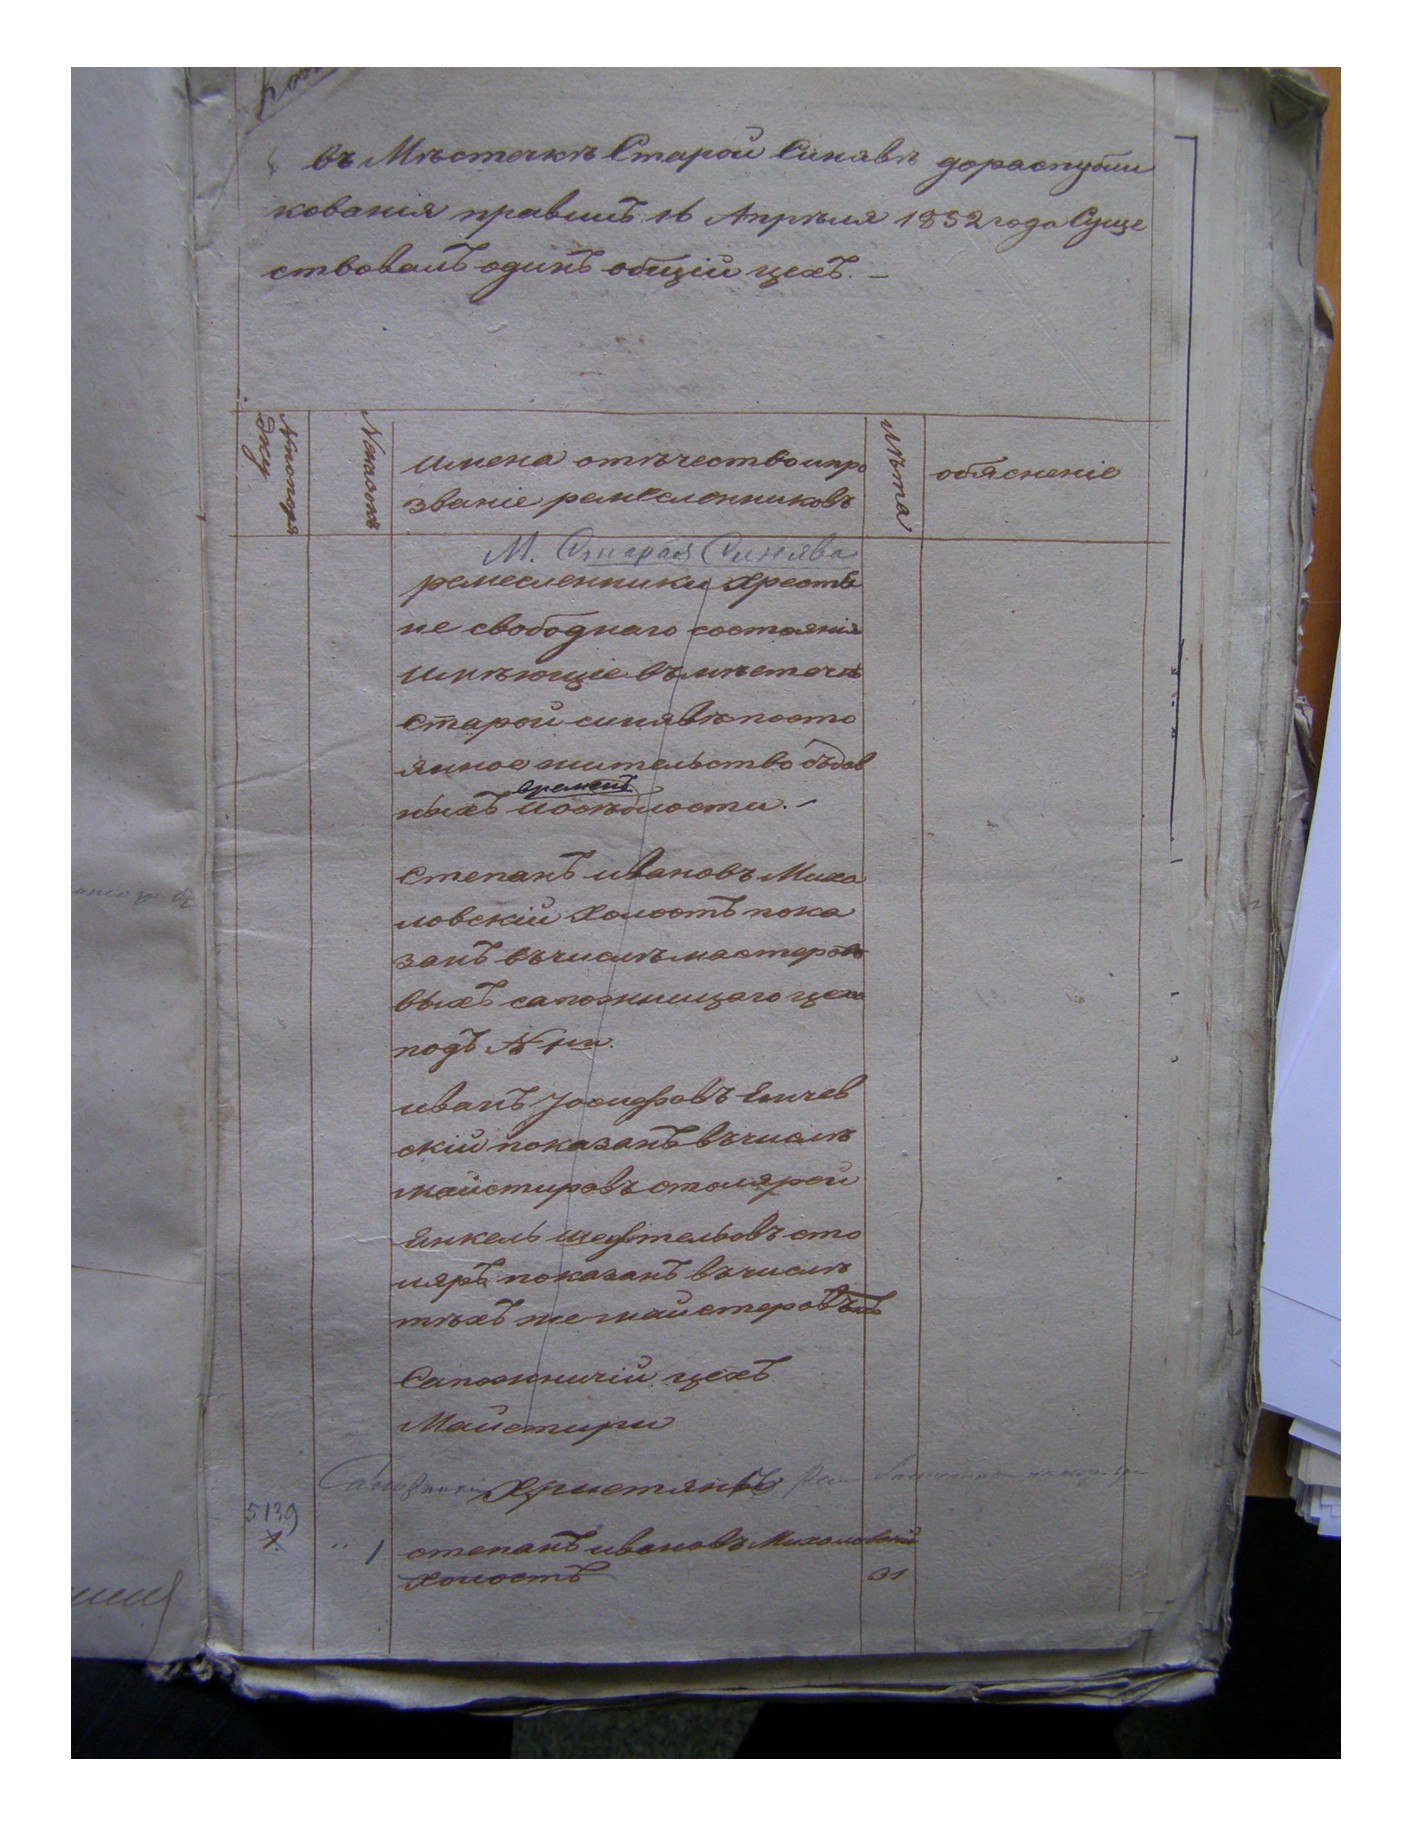 въ Мѣстечкѣ Старой Синявѣ дораспубли
кованія правилъ 16 Апрѣля 1852 года Суще
ствовалъ одинъ общій цехъ. —
№ попоря
дку
№ насемѣ
имена отѣчество и про
званіе ремесленниковъ
лѣта
обясненіе
М. Старая Синява
ремесленники Хрестя
не свободнаго состоянія
имѣющіе въ мѣстечкѣ
Старой синявѣ посто
янное жительство съдав
времѣнъ
ныхъ иосѣдлости. —
Степанъ ивановъ Михо
ловскій Холостъ пока
занъ въчислѣ мастеро
выхъ сапожницаго цеха
подъ № 1мъ.
иванъ Іосифовъ
скій показанъ въчислѣ
майстировъ столярей
Янкель Шефтельовъ сто
ляръ показанъ въчислѣ
тѣхъ же майстеровъ
Сапожничій цехъ
Майстири
Христянъ
5139
1 степанъ ивановъ Михоловскій
Холостъ 31